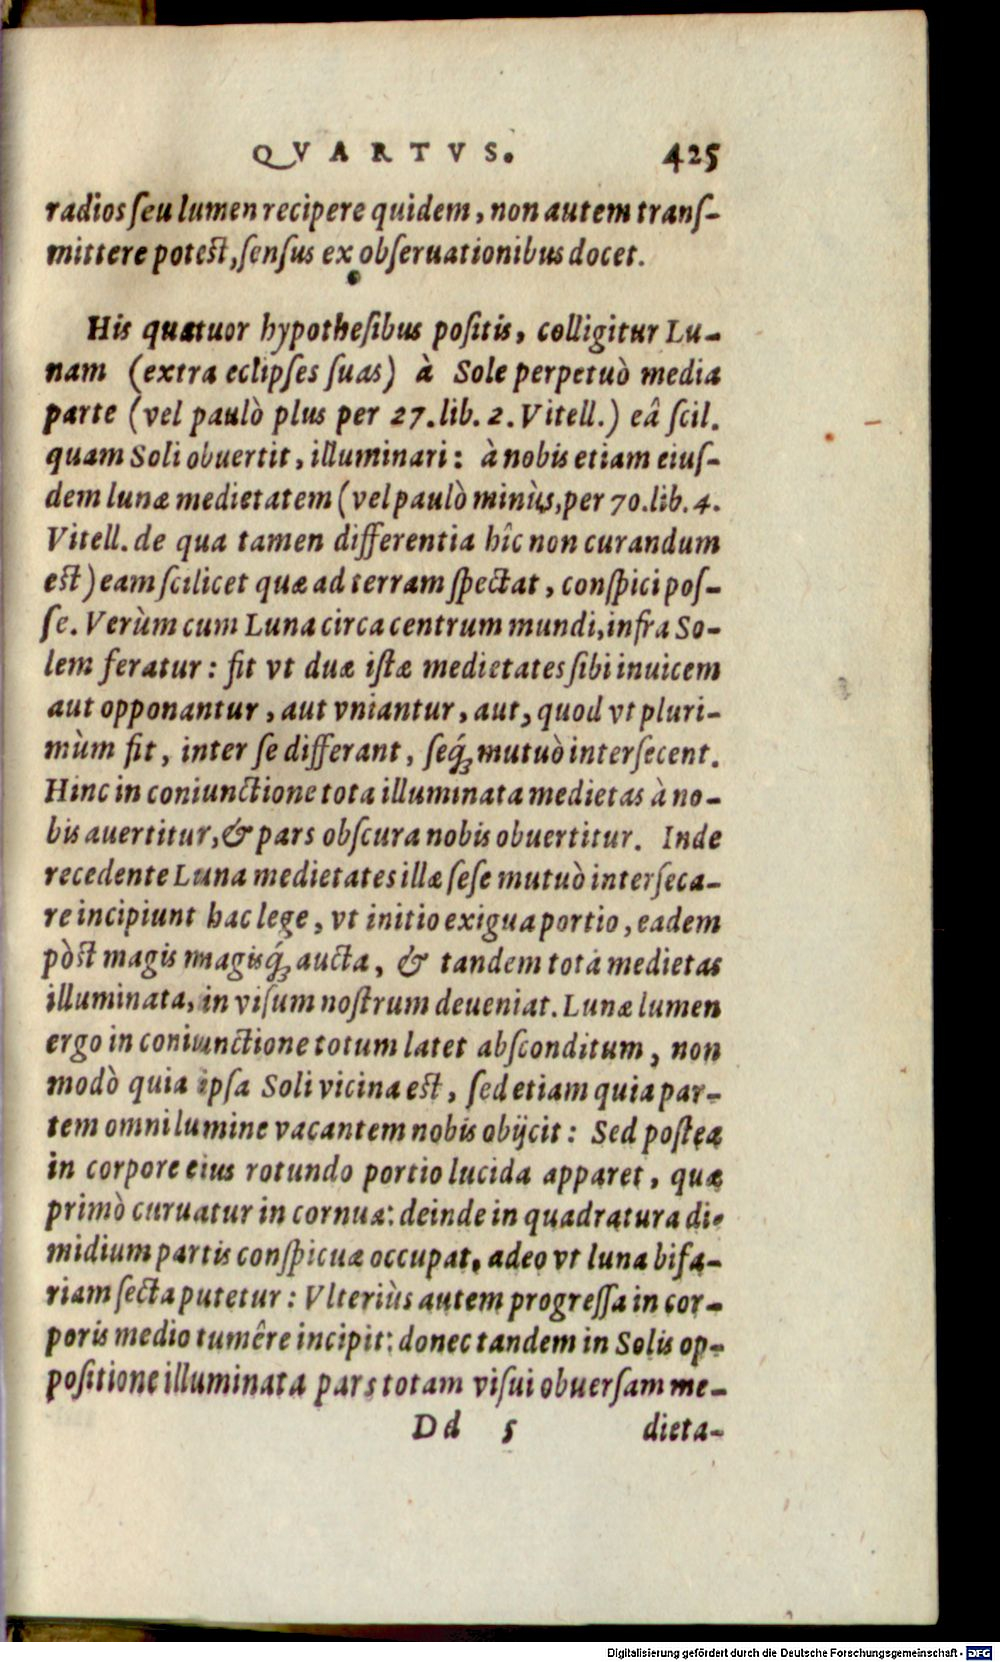 QVARTVS. 425
radios ſeu lumen recipere quidem, non autem tranſ-
mittere poteſt, ſenſus ex obſeruationibus docet.
His quatuor hypotheſibus poſitis, colligitur Lu-
nam (extra eclipſes ſuas) à Sole perpetuò media
parte (vel paulò plus per 27. lib. 2. Vitell.) eâ ſcil.
quam Soli obuertit, illuminari: à nobis etiam eiuſ-
dem lunæ medietatem (vel paulò minùs, per 70. lib. 4.
Vitell. de qua tamen differentia hîc non curandum
eſt) eam ſcilicet quæ ad terram ſpectat, conſpici poſ-
ſe. Verùm cum Luna circa centrum mundi, infra So-
lem feratur: fit vt duæ iſtæ medietates ſibi inuicem
aut opponantur, aut vniantur, aut, quod vt pluri-
mùm fit, inter ſe differant, ſeq́ꝫ mutuò interſecent.
Hinc in coniunctione tota illuminata medietas à no-
bis auertitur, & pars obſcura nobis obuertitur. Inde
recedente Luna medietates illæ ſeſe mutuò interſeca-
re incipiunt hac lege, vt initio exigua portio, eadem
pòſt magis magisq́ꝫ aucta, & tandem tota medietas
illuminata, in viſum noſtrum deueniat. Lunæ lumen
ergo in coniunctione totum latet abſconditum, non
modò quia ipſa Soli vicina eſt, ſed etiam quia par-
tem omni lumine vacantem nobis obijcit: Sed poſtea
in corpore eius rotundo portio lucida apparet, quæ
primò curuatur in cornua: deinde in quadratura di-
midium partis conſpicuæ occupat, adeo vt luna bifa-
riam ſecta putetur: Vlteriùs autem progreſſa in cor-
poris medio tumêre incipit: donec tandem in Solis op-
poſitione illuminata pars totam viſui obuerſam me-
Dd 5 dieta-
Digitalisierung gefördert durch die Deutsche Forschungsgemeinschaft - DFG